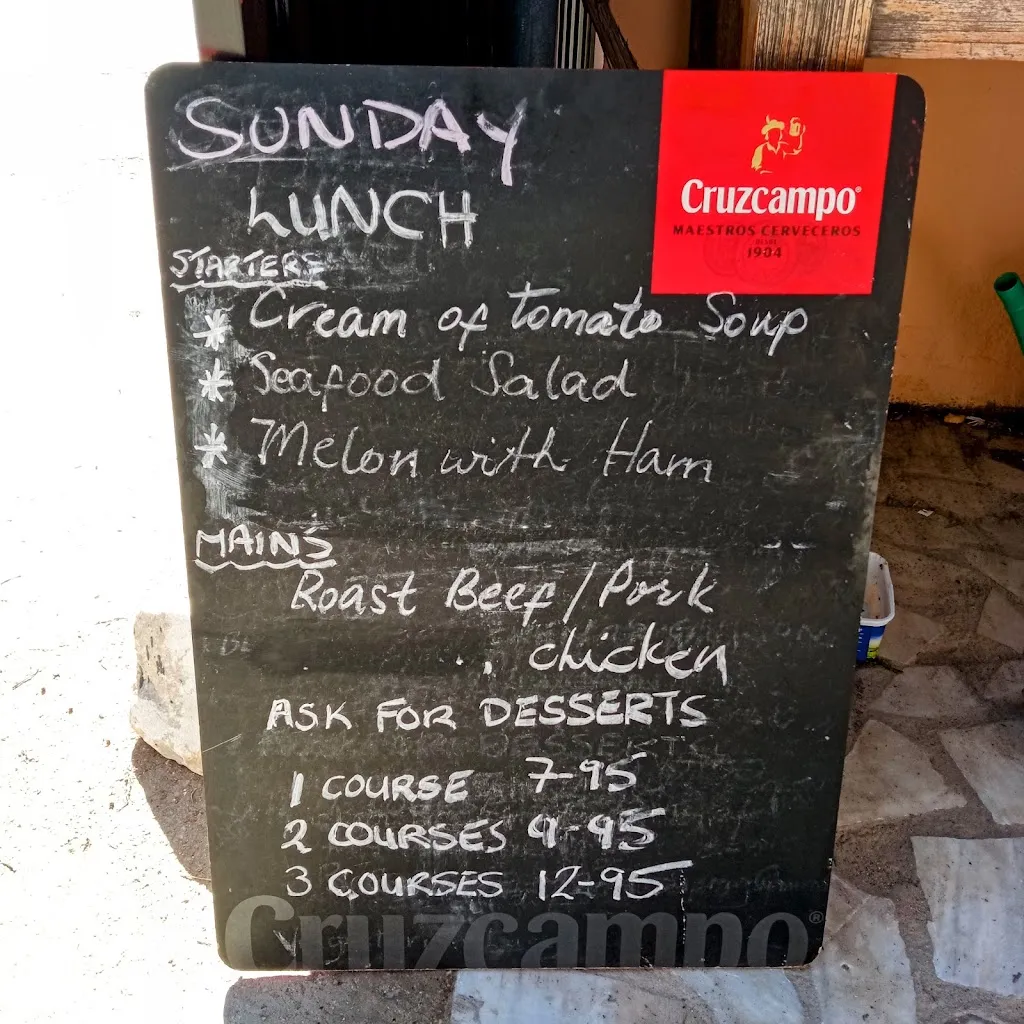 SUNDAY
LUNCH
Cruzcampo®
MAESTROS CERVECEROS
DESDE
1904
STARTERS
* Cream of tomato Soup
* Seafood Salad
* Melon with Ham
MAINS
Roast Beef/Pork
, chicken
ASK FOR DESSERTS
1 COURSE 7-95
2 COURSES 9-95
3 COURSES 12-95
Cruzcampo®